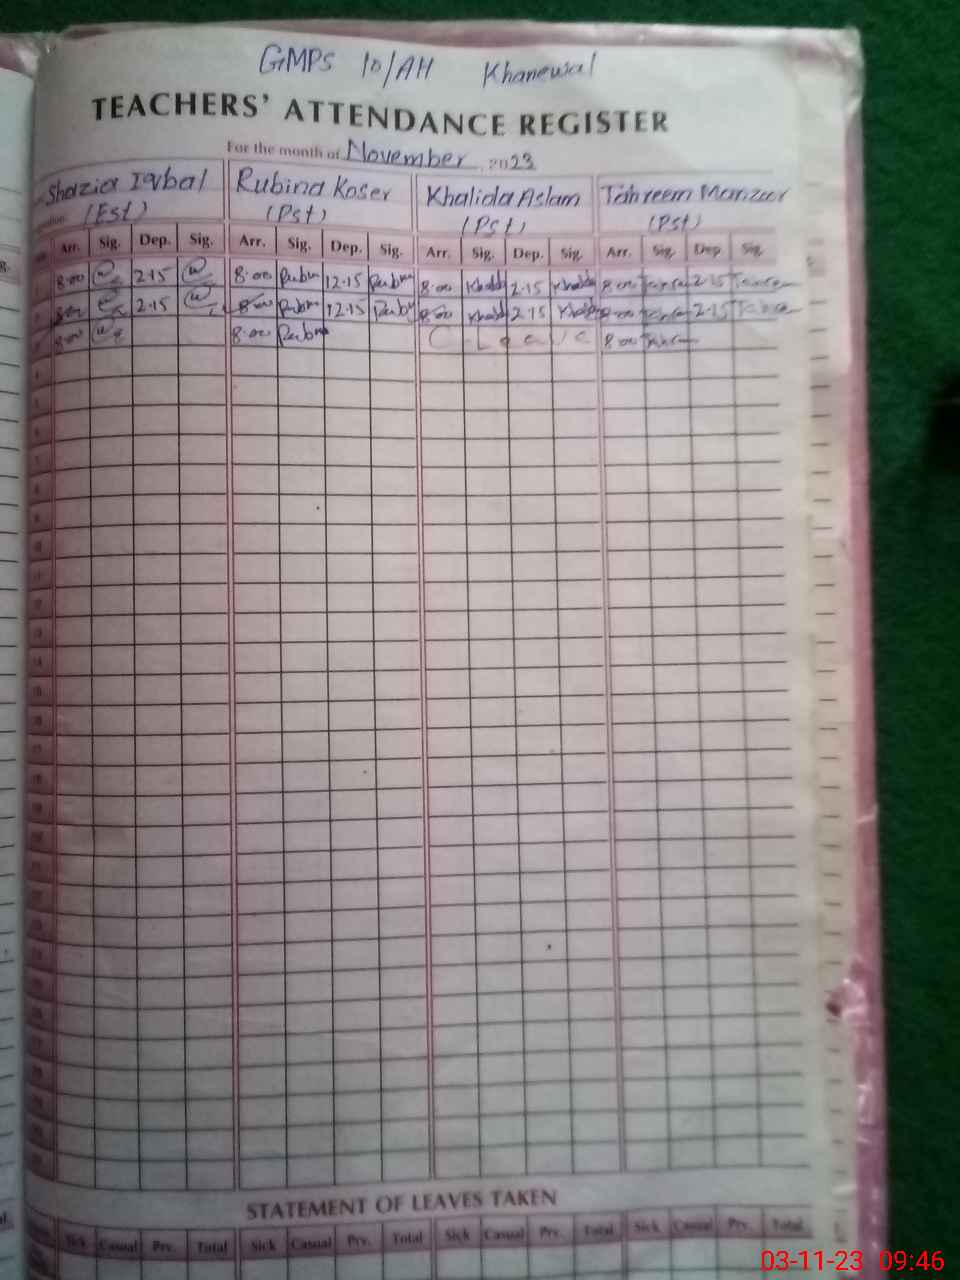 GMPS 10/AH Khanewal
TEACHERS' ATTENDANCE REGISTER
For the month of November 2023
Shazia Iqbal Rubina Koser Khalida Aslam Tahreem Manzoor
(Est) (Pst) (Pst) (Pst)
Arr. Sig. Dep. Sig. Arr. Sig. Dep. Sig. Arr. Sig. Dep. Sig. Arr. Sig. Dep. Sig.
8:00 2:15 8:00 Rubina 12:15 Rubina 8:00 Khalida 2:15 Khalida 8:00 2:15
8:00 2:15 8:00 Rubina 12:15 Rubina 8:00 Khalida 2:15 Khalida 8:00 2:15
8:00 8:00 Rubina C-Leave 8:00
STATEMENT OF LEAVES TAKEN
Sick Casual Prv. Total Sick Casual Prv. Total Sick Casual Prv. Total Sick Casual Prv. Total
03-11-23 09:46